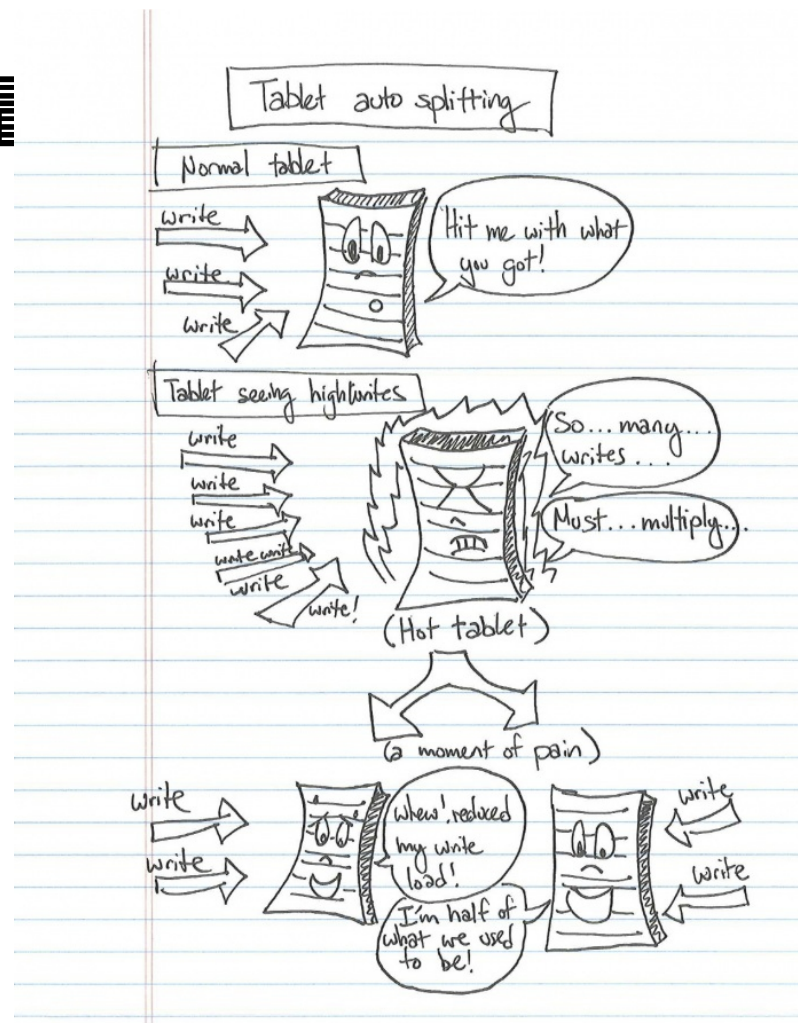 Tablet auto splitting
Normal tablet
write
write
write
Hit me with what
you got!
Tablet seeing high writes
write
write
write
write write
write
write!
So... many...
writes...
Must... multiply...
(Hot tablet)
(a moment of pain)
write
write
Whew!, reduced
my write
load!
I'm half of
what we used
to be!
write
write